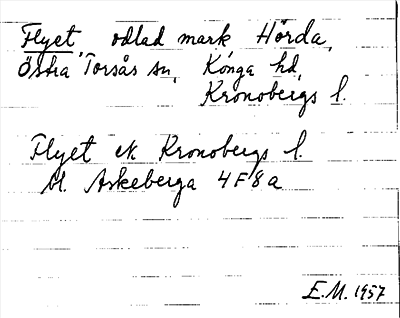 Flyet, odlad mark, Hörda,
Östra Torsås sn, Konga hd,
Kronobergs l.
Flyet ek Kronobergs l.
bl. Askeberga 4F8a
E.M. 1957